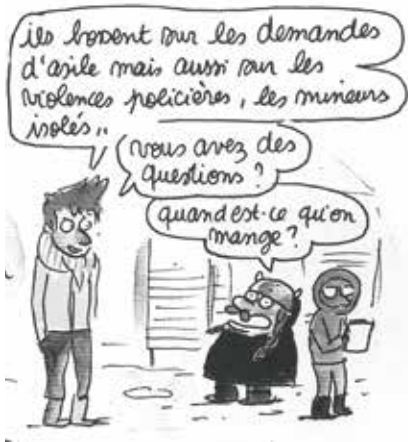 ils bossent sur les demandes
d'asile mais aussi sur les
violences policières, les mineurs
isolés..
vous avez des
questions ?
quand est-ce qu'on
mange ?